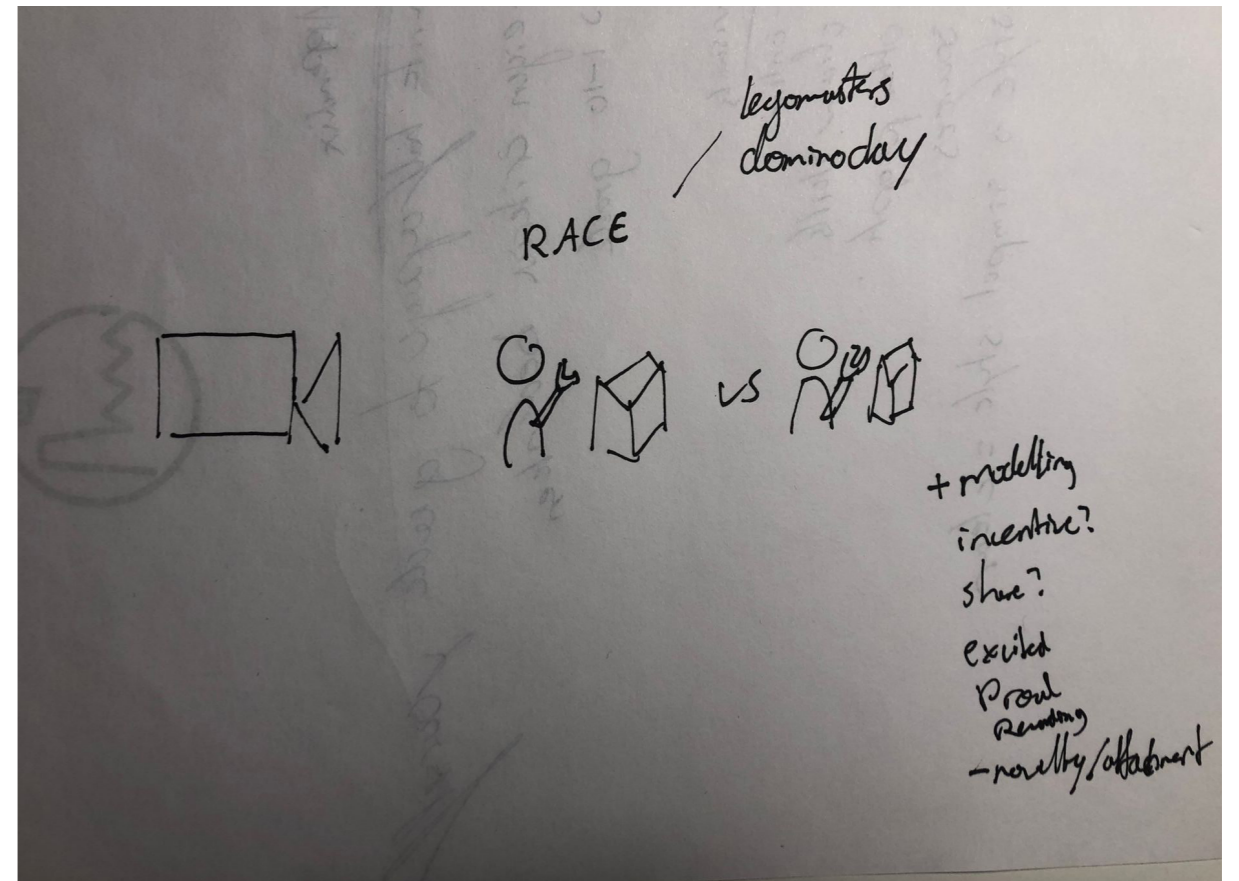 legomasters
dominoday
RACE
vs
+ modelling
incentive?
share?
excited
Proud
Rewarding
- novelty/attachment